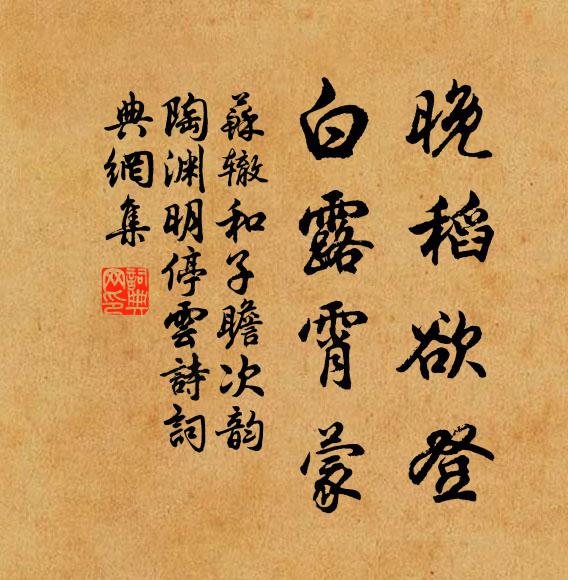 晚稻欲登
白露霄蒙
蘇辙和子瞻次韵
陶渊明停雲詩詞
典網集
詞典
网印